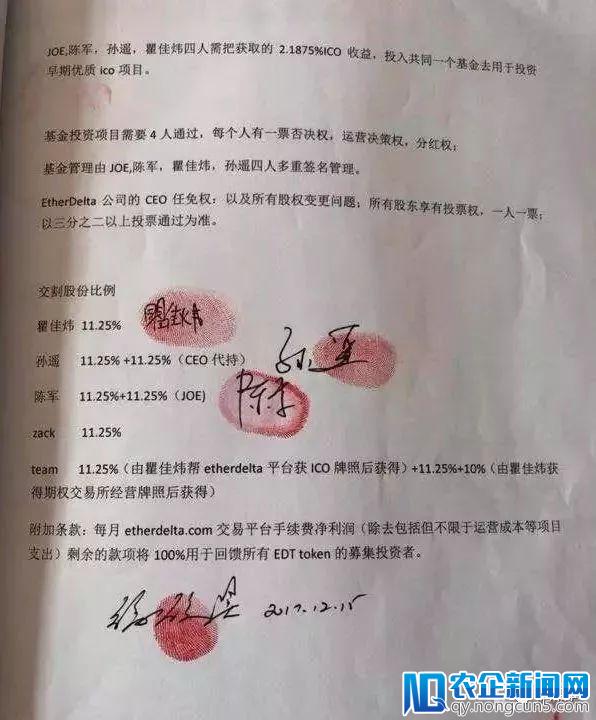 JOE,陈军，孙遥，瞿佳炜四人需把获取的 2.1875%ICO 收益，投入共同一个基金去用于投资
早期优质 ico 项目。
基金投资项目需要 4 人通过，每个人有一票否决权，运营决策权，分红权；
基金管理由 JOE,陈军，瞿佳炜，孙遥四人多重签名管理。
EtherDelta 公司的 CEO 任免权：以及所有股权变更问题；所有股东享有投票权，一人一票；
以三分之二以上投票通过为准。
交割股份比例
瞿佳炜 11.25% 瞿佳炜
孙遥 11.25% +11.25%（CEO 代持） 孙遥
陈军 11.25%+11.25%（JOE) 陈军
zack 11.25%
team 11.25%（由瞿佳炜帮 etherdelta 平台获 ICO 牌照后获得）+11.25%+10%（由瞿佳炜获
得期权交易所经营牌照后获得）
附加条款：每月 etherdelta.com 交易平台手续费净利润（除去包括但不限于运营成本等项目
支出）剩余的款项将 100%用于回馈所有 EDT token 的募集投资者。
2017.12.15
农企新闻网
qy.nongcun5.com